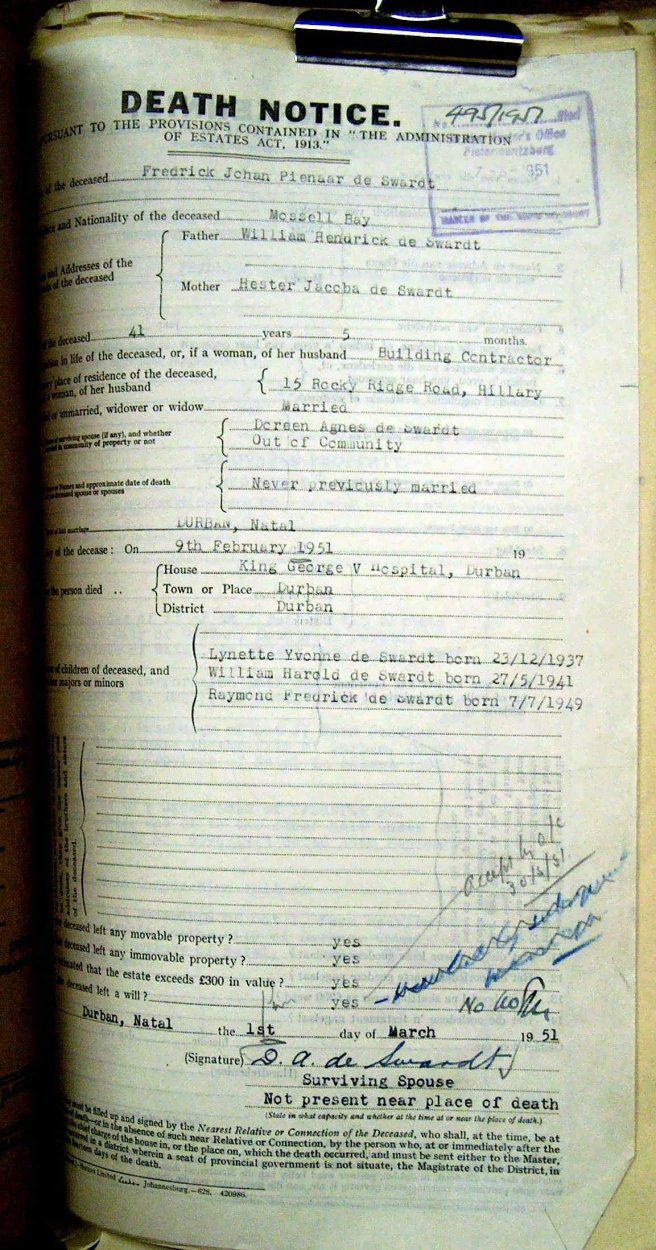 DEATH NOTICE.
PURSUANT TO THE PROVISIONS CONTAINED IN "THE ADMINISTRATION
OF ESTATES ACT, 1913."
495/1951
Master's Office
Pietermaritzburg
951
of the deceased Fredrick Johan Pienaar de Swardt
and Nationality of the deceased Mossell Bay
Father William Hendrick de Swardt
and Addresses of the
of the deceased
Mother Hester Jacoba de Swardt
the deceased 41 years 5 months.
in life of the deceased, or, if a woman, of her husband Building Contractor
place of residence of the deceased,
woman, of her husband 15 Rocky Ridge Road, Hillary
or unmarried, widower or widow Married
of surviving spouse (if any), and whether
in community of property or not
Doreen Agnes de Swardt
Out of Community
Names and approximate date of death
spouse or spouses
Never previously married
marriage DURBAN, Natal
of the decease: On 9th February 1951 19
House King George V Hospital, Durban
the person died .. Town or Place Durban
District Durban
of children of deceased, and
majors or minors
Lynette Yvonne de Swardt born 23/12/1937
William Harold de Swardt born 27/5/1941
Raymond Fredrick de Swardt born 7/7/1949
addresses of the brothers and sisters
of the deceased.
30/4/51
deceased left any movable property? yes
deceased left any immovable property? yes
that the estate exceeds £300 in value? yes
deceased left a will? yes
No
Durban, Natal the 1st day of March 19 51
(Signature) D. A. de Swardt
Surviving Spouse
Not present near place of death
(State in what capacity and whether at the time at or near the place of death.)
must be filled up and signed by the Nearest Relative or Connection of the Deceased, who shall, at the time, be at
death—or in the absence of such near Relative or Connection, by the person who, at or immediately after the
the chief charge of the house in, or the place on, which the death occurred, and must be sent either to the Master,
occurred in a district wherein a seat of provincial government is not situate, the Magistrate of the District, in
fourteen days of the death.
Limited Johannesburg.—628. 420986.